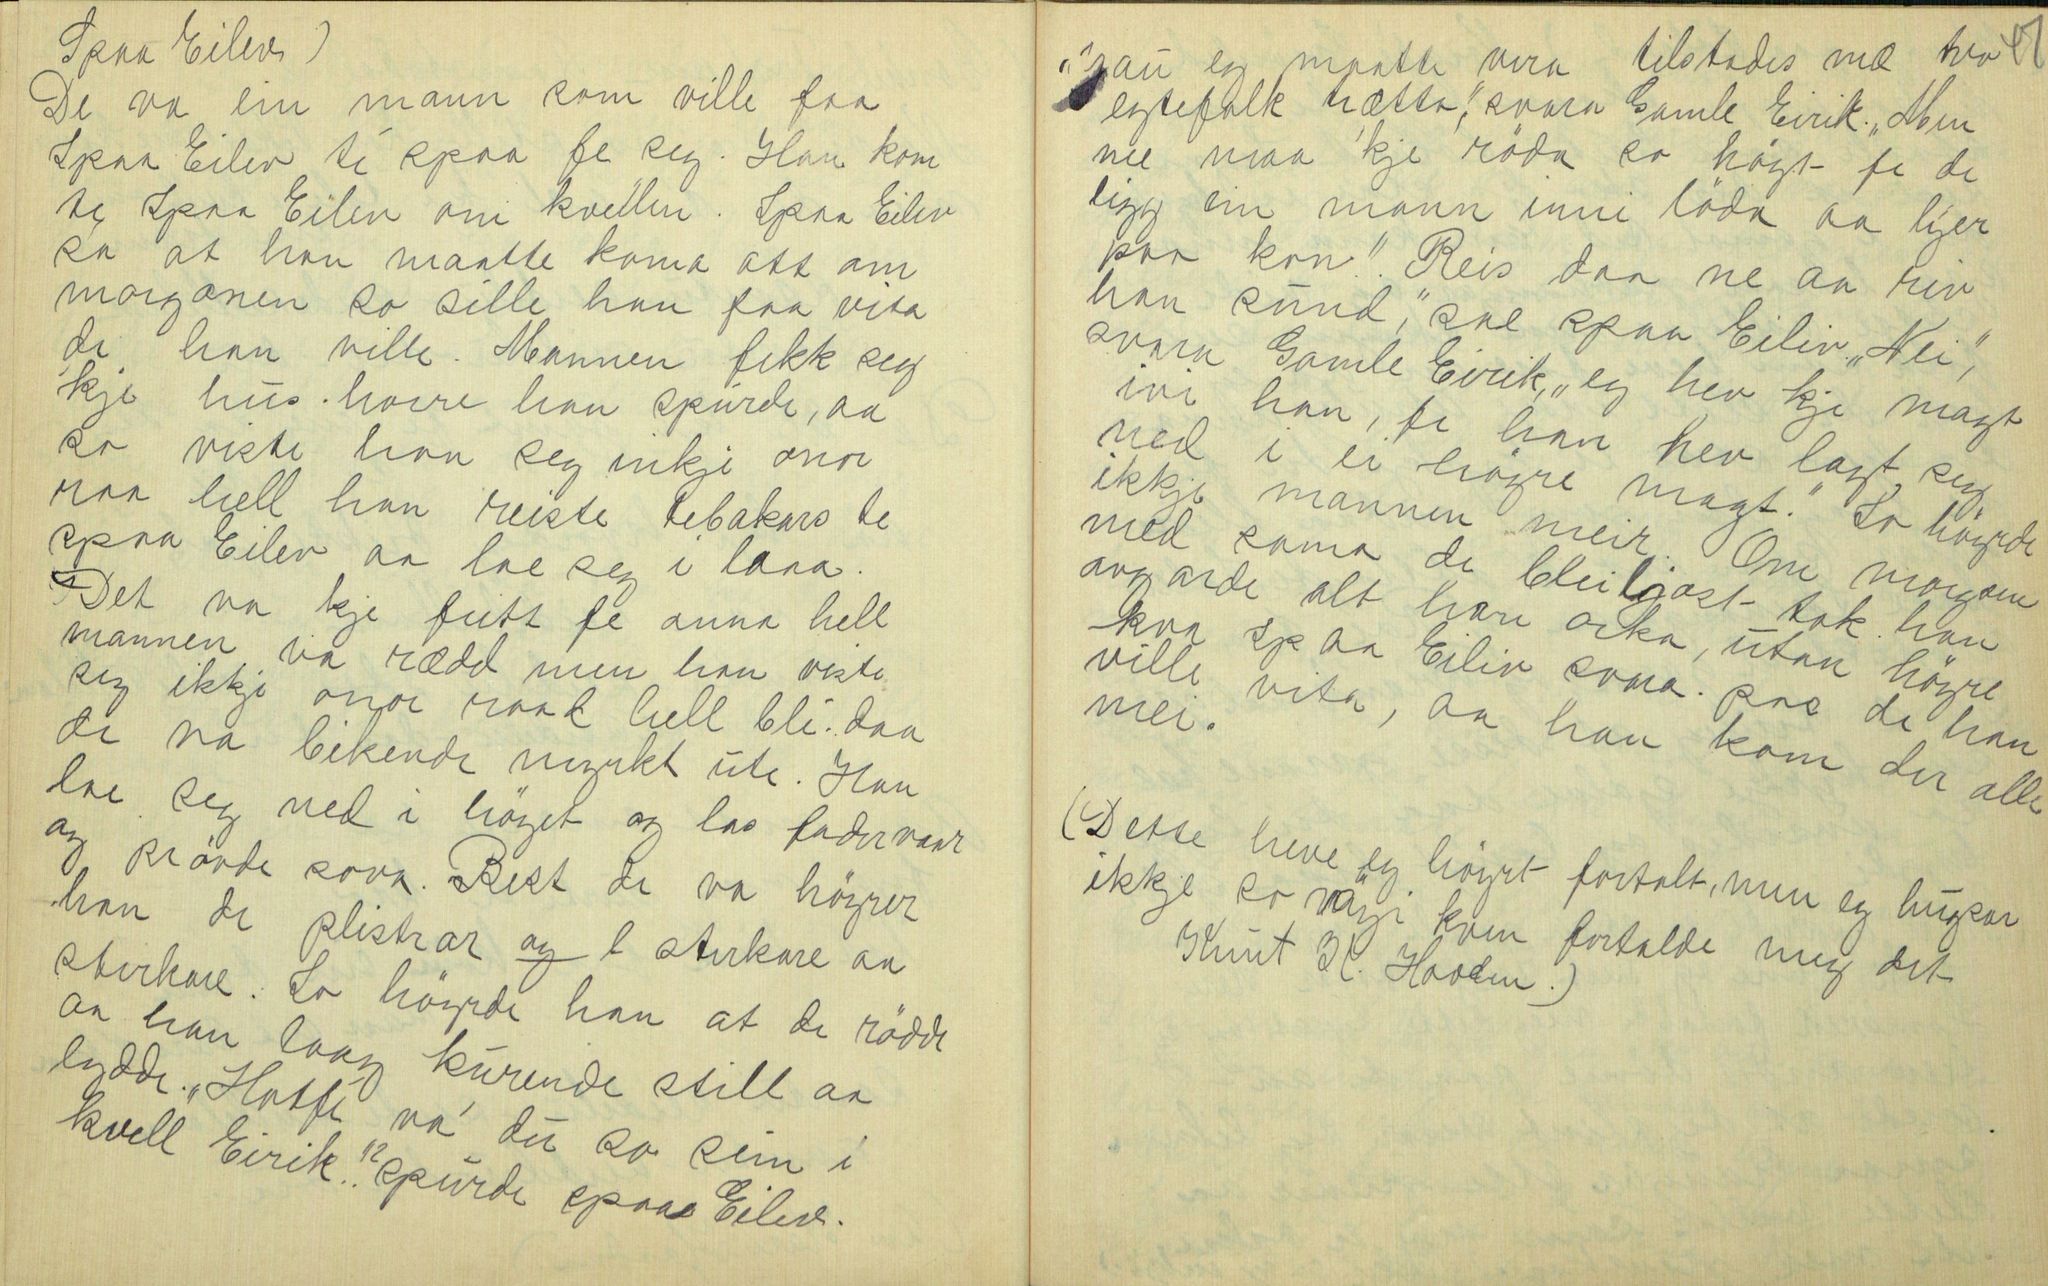 Spaa Eilev)
De va ein mann som ville faa
Spaa Eilev te spaa fe seg. Han kom
te Spaa Eilev om kvellen. Spaa Eilev
sa at han maatte koma att om
morgonen so sille han faa vita
de han ville. Mannen fekk seg
'kje hus. horre han spurde, aa
so viste han seg inkje onor
raa hell han reiste tebakars te
spaa Eilev aa lae seg i laaa.
Det va kje fritt fe anna hell
mannen va rædd men han viste
seg ikkje onor raad hell bli. daa
de va bikende myrkt ute. Han
lae seg ned i höyet og las fadervaar
og prövde sova. Best de va höyrer
han de plistrar og l sterkare aa
sterkare. So höyrde han at de rödde
aa han laag kurende still aa
lydde. "Hotfe va' du so sein i
kvell Eirik.."? spurde spaa Eilev.
47
"jau eg maatte vera tilstades mæ tvo
egtefolk trætta," svara Gamle Eirik. "Men
me maa 'kje röda so högt fe de
ligg ein mann inni löda aa lyer
paa kon". "Reis daa ne aa riv
han sund," sae spaa Eiliv. "Nei,"
svara Gamle Eirik, "eg hev kje magt
ivi han, fe han hev lagt seg
ned i ei högre magt." So höyrde
ikkje mannen meir. Om morgonen
med soma de bleiljost tok han
avgarde alt han orka, utan höyre
kva spaa Eiliv svara. paa de han
ville vita, aa han kom der alle
mei.
(Dette heve eg höyrt fortalt, men eg hugsar
ikkje so nöyi kven fortalde meg det
Knut K. Hovden.)